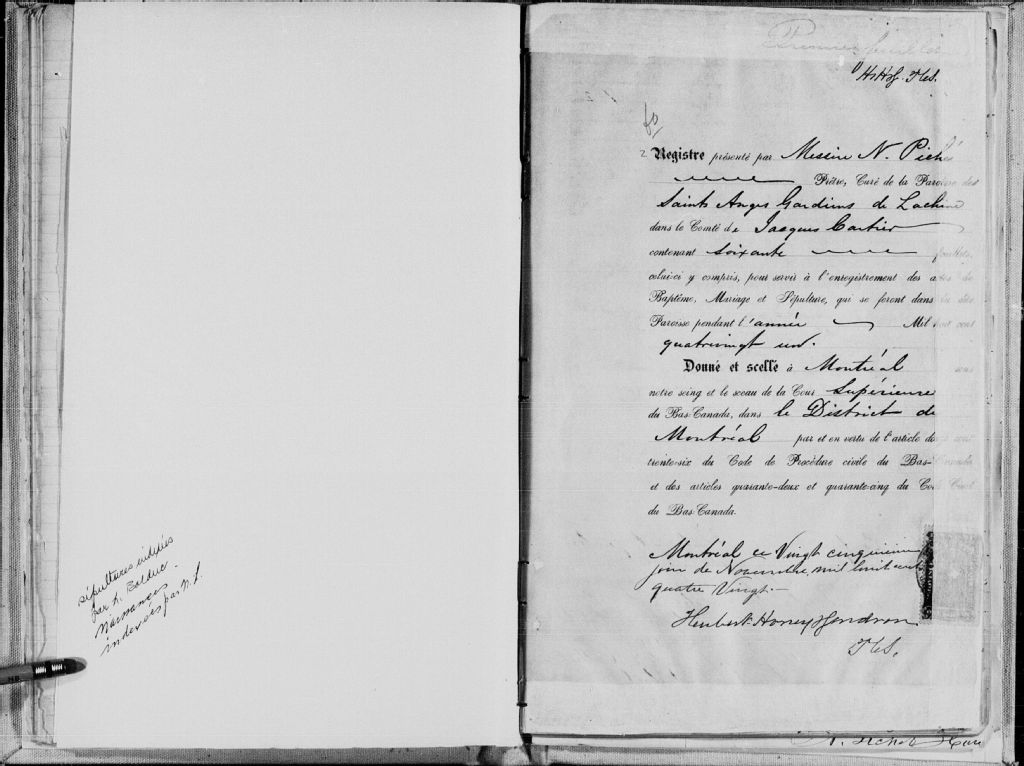 sépultures indexées
par h. Bolduc.
Naissances
indexés par N. L.
Premier feuillet
HHG. PCS.
Registre présenté par Messire N. Piché
Prêtre, Curé de la Paroisse des
Saints Anges Gardiens de Lachine
dans le Comté de Jacques Cartier
contenant soixante feuillets,
celui-ci y compris, pour servir à l'enregistrement des actes de
Baptême, Mariage et Sépulture, qui se feront dans la dite
Paroisse pendant l'année Mil huit cent
quatrevingt un.
Donné et scellé à Montréal sous
notre seing et le sceau de la Cour Supérieure
du Bas-Canada, dans le District de
Montréal par et en vertu de l'article douze cent
trente-six du Code de Procédure civile du Bas-Canada
et des articles quarante-deux et quarante-cinq du Code Civil
du Bas-Canada.
Montréal ce Vingt cinquième
jour de Novembre, mil huit cent
quatre Vingt.
Heubert Honey Gendron
PCS.
N. Piché Ptre Curé